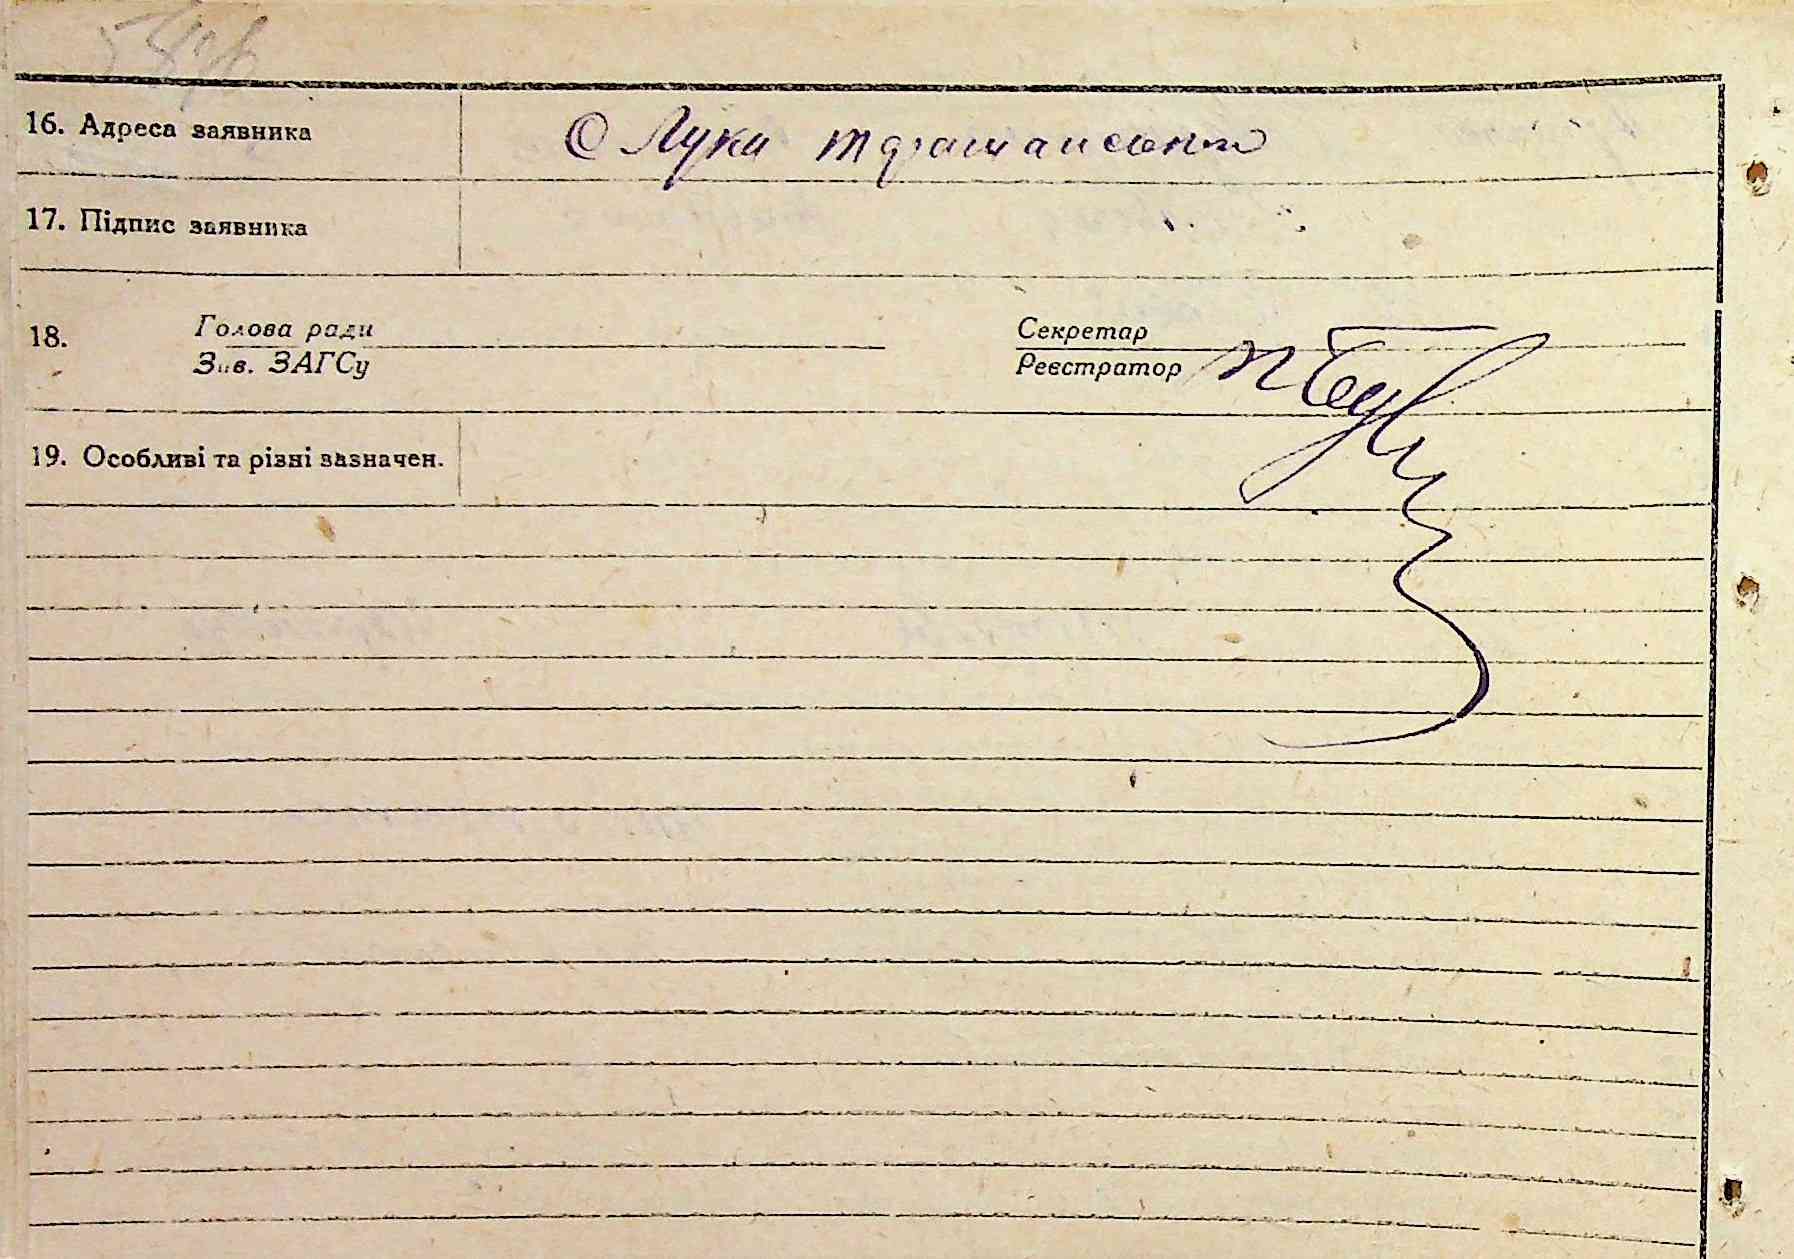 16. Адреса заявника С Луки
17. Підпис заявника
18. Голова ради Секретар
Зав. ЗАГСу Реєстратор
19. Особливі та різні зазначен.